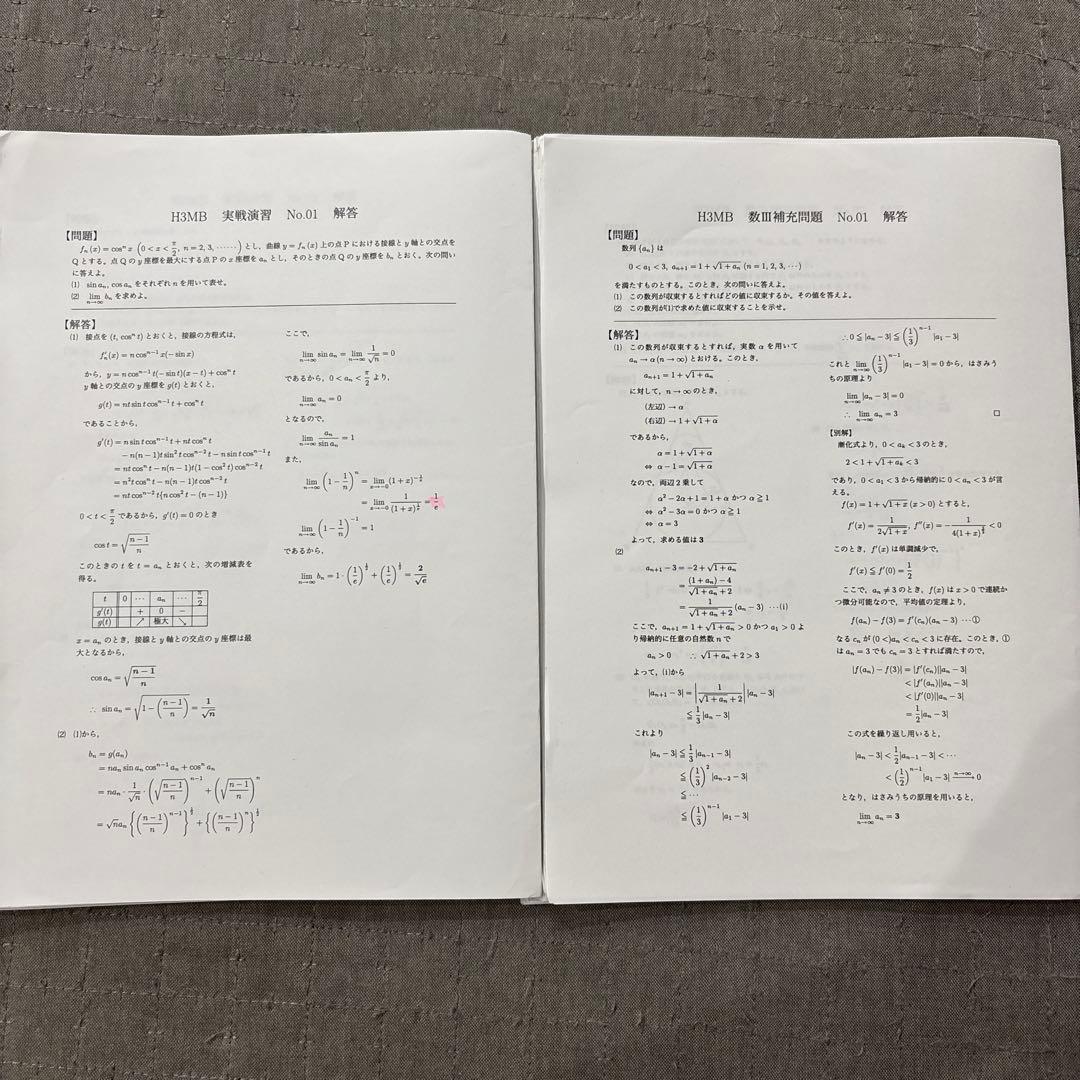 H3MB 実戦演習 No.01 解答
【問題】
fₙ(x) = cosⁿ x (0 < x < π/2, n = 2, 3, ……) とし, 曲線 y = fₙ(x) 上の点 P における接線と y 軸との交点を
Q とする。点 Q の y 座標を最大にする点 P の x 座標を aₙ とし, そのときの点 Q の y 座標を bₙ とおく。次の問い
に答えよ。
(1) sin aₙ, cos aₙ をそれぞれ n を用いて表せ。
(2) lim_{n→∞} bₙ を求めよ。
【解答】
(1) 接点を (t, cosⁿ t) とおくと, 接線の方程式は,
f′ₙ(x) = n cosⁿ⁻¹ x(− sin x)
から, y = n cosⁿ⁻¹ t(− sin t)(x − t) + cosⁿ t
y 軸との交点の y 座標を g(t) とおくと,
g(t) = nt sin t cosⁿ⁻¹ t + cosⁿ t
であることから,
g′(t) = n sin t cosⁿ⁻¹ t + nt cosⁿ t
− n(n−1)t sin² t cosⁿ⁻² t − n sin t cosⁿ⁻¹ t
= nt cosⁿ t − n(n−1)t(1 − cos² t) cosⁿ⁻² t
= n²t cosⁿ t − n(n−1)t cosⁿ⁻² t
= nt cosⁿ⁻² t{n cos² t − (n−1)}
0 < t < π/2 であるから, g′(t) = 0 のとき
cos t = √((n−1)/n)
このときの t を t = aₙ とおくと, 次の増減表を
得る。
t 0 ⋯ aₙ ⋯ π/2
g′(t) + 0 −
g(t) ↗ 極大 ↘
x = aₙ のとき, 接線と y 軸との交点の y 座標は最
大となるから,
cos aₙ = √((n−1)/n)
∴ sin aₙ = √(1 − ((n−1)/n)) = 1/√n
(2) (1)から,
bₙ = g(aₙ)
= naₙ sin aₙ cosⁿ⁻¹ aₙ + cosⁿ aₙ
= naₙ · 1/√n · (√((n−1)/n))ⁿ⁻¹ + (√((n−1)/n))ⁿ
= √n aₙ {((n−1)/n)ⁿ⁻¹}^{1/2} + {((n−1)/n)ⁿ}^{1/2}
ここで,
lim_{n→∞} sin aₙ = lim_{n→∞} 1/√n = 0
であるから, 0 < aₙ < π/2 より,
lim_{n→∞} aₙ = 0
となるので,
lim_{n→∞} aₙ/sin aₙ = 1
また,
lim_{n→∞} (1 − 1/n)ⁿ = lim_{x→−0} (1+x)^{−1/x}
= lim_{x→−0} 1/(1+x)^{1/x} = 1/e
lim_{n→∞} (1 − 1/n)⁻¹ = 1
であるから,
lim_{n→∞} bₙ = 1 · (1/e)^{1/2} + (1/e)^{1/2} = 2/√e
H3MB 数Ⅲ補充問題 No.01 解答
【問題】
数列 {aₙ} は
0 < a₁ < 3, aₙ₊₁ = 1 + √(1 + aₙ) (n = 1, 2, 3, ⋯)
を満たすものとする。このとき, 次の問いに答えよ。
(1) この数列が収束するとすればどの値に収束するか。その値を答えよ。
(2) この数列が(1)で求めた値に収束することを示せ。
【解答】
(1) この数列が収束するとすれば, 実数 α を用いて
aₙ → α (n → ∞) とおける。このとき,
aₙ₊₁ = 1 + √(1 + aₙ)
に対して, n → ∞ のとき,
(左辺) → α
(右辺) → 1 + √(1 + α)
であるから,
α = 1 + √(1 + α)
⇔ α − 1 = √(1 + α)
なので, 両辺 2 乗して
α² − 2α + 1 = 1 + α かつ α ≧ 1
⇔ α² − 3α = 0 かつ α ≧ 1
⇔ α = 3
よって, 求める値は 3
(2)
aₙ₊₁ − 3 = −2 + √(1 + aₙ)
= ((1 + aₙ) − 4)/(√(1 + aₙ) + 2)
= 1/(√(1 + aₙ) + 2) (aₙ − 3) ⋯(i)
ここで, aₙ₊₁ = 1 + √(1 + aₙ) > 0 かつ a₁ > 0 よ
り帰納的に任意の自然数 n で
aₙ > 0 ∴ √(1 + aₙ) + 2 > 3
よって, (i)から
|aₙ₊₁ − 3| = |1/(√(1 + aₙ) + 2)| |aₙ − 3|
≦ 1/3 |aₙ − 3|
これより
|aₙ − 3| ≦ 1/3 |aₙ₋₁ − 3|
≦ (1/3)² |aₙ₋₂ − 3|
≦ ⋯
≦ (1/3)ⁿ⁻¹ |a₁ − 3|
∴ 0 ≦ |aₙ − 3| ≦ (1/3)ⁿ⁻¹ |a₁ − 3|
これと lim_{n→∞} (1/3)ⁿ⁻¹ |a₁ − 3| = 0 から, はさみう
ちの原理より
lim_{n→∞} |aₙ − 3| = 0
∴ lim_{n→∞} aₙ = 3 □
【別解】
漸化式より, 0 < aₖ < 3 のとき,
2 < 1 + √(1 + aₖ) < 3
であり, 0 < a₁ < 3 から帰納的に 0 < aₙ < 3 が言
える。
f(x) = 1 + √(1 + x) (x > 0) とすると,
f′(x) = 1/(2√(1 + x)), f″(x) = − 1/(4(1 + x)^{3/2}) < 0
このとき, f′(x) は単調減少で,
f′(x) ≦ f′(0) = 1/2
ここで, aₙ ≠ 3 のとき, f(x) は x > 0 で連続か
つ微分可能なので, 平均値の定理より,
f(aₙ) − f(3) = f′(cₙ)(aₙ − 3) ⋯①
なる cₙ が (0 <)aₙ < cₙ < 3 に存在。このとき, ①
は aₙ = 3 でも cₙ = 3 とすれば満たすので,
|f(aₙ) − f(3)| = |f′(cₙ)||aₙ − 3|
< |f′(aₙ)||aₙ − 3|
< |f′(0)||aₙ − 3|
= 1/2 |aₙ − 3|
この式を繰り返し用いると,
|aₙ − 3| < 1/2 |aₙ₋₁ − 3| < ⋯
< (1/2)ⁿ⁻¹ |a₁ − 3| →(n→∞) 0
となり, はさみうちの原理を用いると,
lim_{n→∞} aₙ = 3